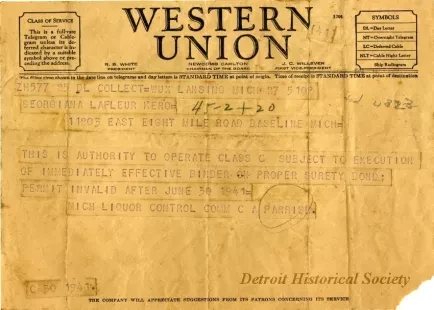 CLASS OF SERVICE
This is a full-rate Telegram or Cablegram unless its deferred character is indicated by a suitable symbol above or preceding the address.
WESTERN
UNION
1204
SYMBOLS
DL=Day Letter
NT=Overnight Telegram
LC=Deferred Cable
NLT=Cable Night Letter
Ship Radiogram
R. B. WHITE
PRESIDENT
NEWCOMB CARLTON
CHAIRMAN OF THE BOARD
J. C. WILLEVER
FIRST VICE-PRESIDENT
The filing time shown in the date line on telegrams and day letters is STANDARD TIME at point of origin. Time of receipt is STANDARD TIME at point of destination
ZH577 25 DL COLLECT=WUX LANSING MICH 27 510P
GEORGIANA LAFLEUR KERO=
45-2+20
11803 EAST EIGHT MILE ROAD BASELINE MICH=
THIS IS AUTHORITY TO OPERATE CLASS C SUBJECT TO EXECUTION
OF IMMEDIATELY EFFECTIVE BINDER ON PROPER SURETY BOND;
PERMIT INVALID AFTER JUNE 30 1941=
MICH LIQUOR CONTROL COMM C A PARRISH.
C 30 1941=
Detroit Historical Society
THE COMPANY WILL APPRECIATE SUGGESTIONS FROM ITS PATRONS CONCERNING ITS SERVICE